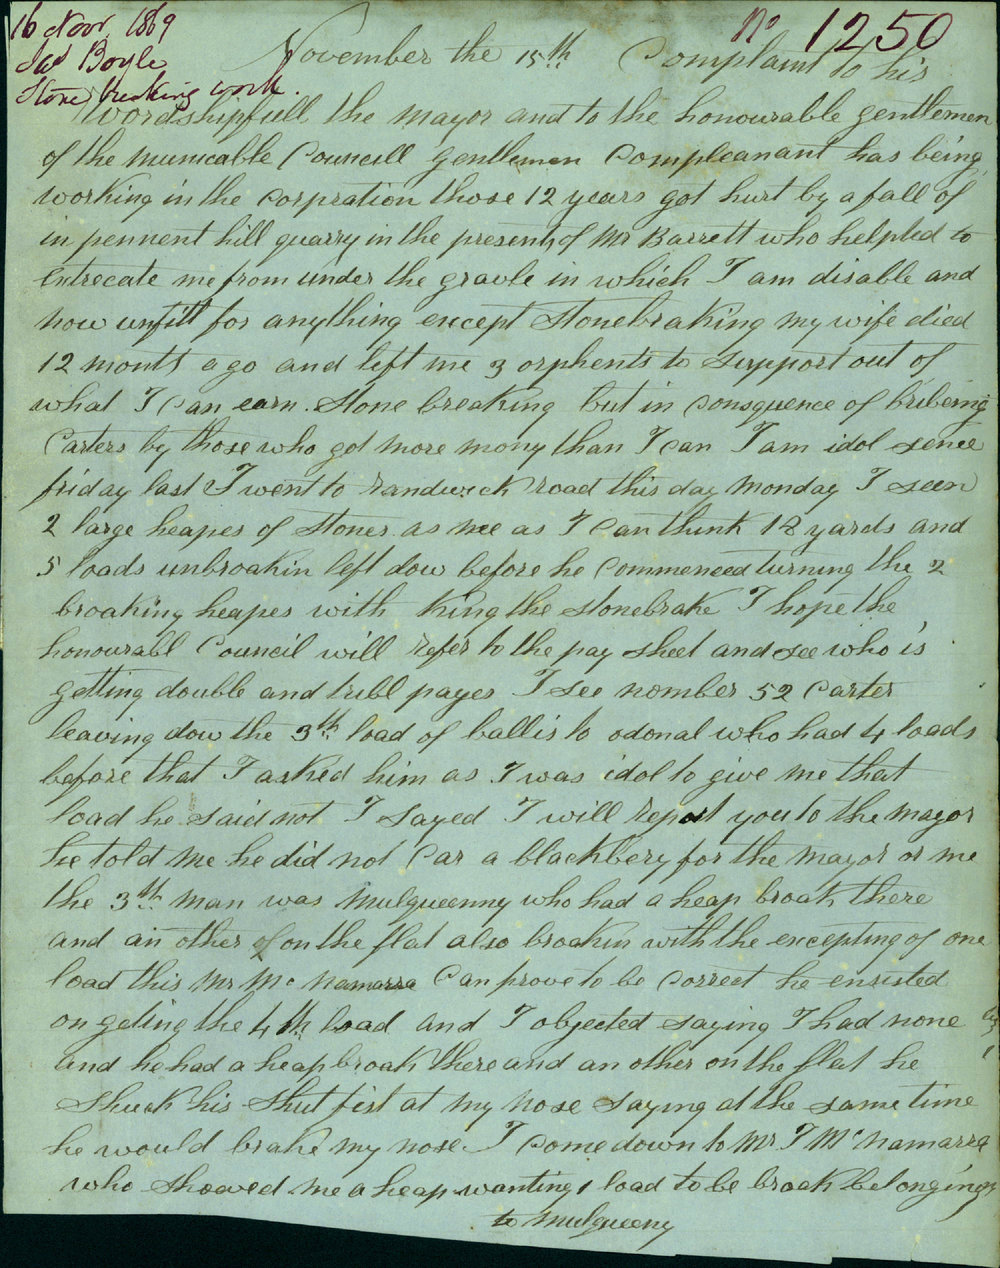 16 Novr. 1869
Jas Boyle
Stone breaking work.
No 1250
November the 15th Complaint to his
Wordshipfull the mayor and to the honourable gentlemen
of the municable Councill gentlemen Compleanant has being
working in the Corpration those 12 years got hurt by a fall of
in pennent hill quarry in the presents of Mr Barrett who helpted to
entrecate me from under the gravle in which I am disable and
now unfitt for anything except Stonebraking my wife died
12 month ago and left me 3 orphents to Support out of
what I can earn. Stone breaking but in Consquence of bribering
Carters by those who got more mony than I can I am idol sence
friday last I went to randwick road this day monday I seen
2 large heapes of Stones as nee as I can think 18 yards and
5 loads unbroakin left dow before he Commenced turning the 2
broaking heapes with King the Stonebrake I hope the
honourabl Council will refer to the pay sheet and see who is
getting double and tribl payes I see nomber 52 Carter
leaving dow the 3th load of ballis to odonal who had 4 loads
before that I asked him as I was idol to give me that
load he said not I Sayed I will report you to the mayor
he told me he did not Car a blackbery for the mayor or me
the 3th man was Mulqueenny who had a heap broak there
and an other on the flat also broakin with the excepting of one
load this Mr Mc Namarra Can prove to be Correct he ensisted
on geting the 4th load and I objected saying I had none
and he had a heap broak there and an other on the flat he
Shuck his Shut fist at my nose saying at the same time
he would brake my nose I Come down to Mr T McNamarra
who Showed me a heap wanting 1 load to be broak belonging
to Mulqueeny